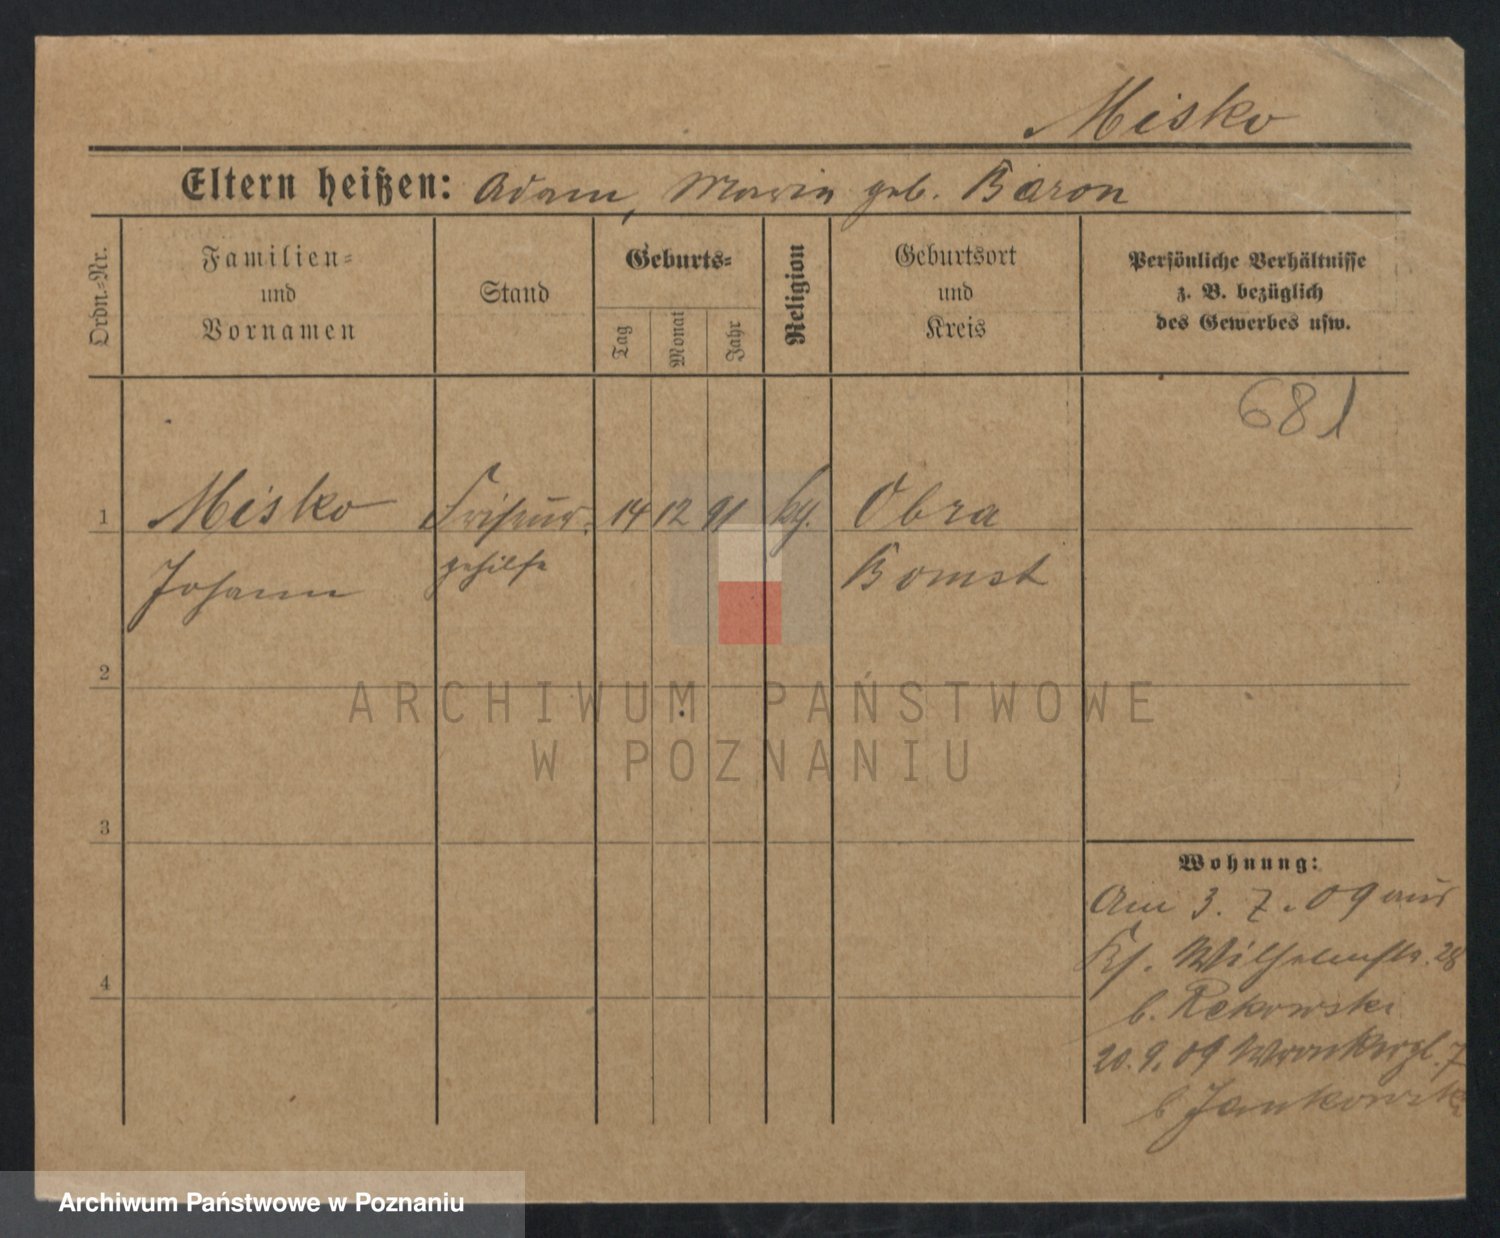 Misko
Eltern heißen: Adam, Maria geb. Baron
Ordn.-Nr.
Familien- und Vornamen
Stand
Geburts-
Tag
Monat
Jahr
Religion
Geburtsort und Kreis
Persönliche Verhältnisse
z. B. bezüglich
des Gewerbes usw.
681
1 Misko Friseur- 14 12 91 kg. Obra
Johann gehilfe Bomst
2
ARCHIWUM PAŃSTWOWE
W POZNANIU
3
Wohnung:
Am 3. 7. 09 aus
Wilhelmstr. 28
b. Rekowski
4
20. 9. 09 Wronkerpl. 7
b Jankowski
Archiwum Państwowe w Poznaniu